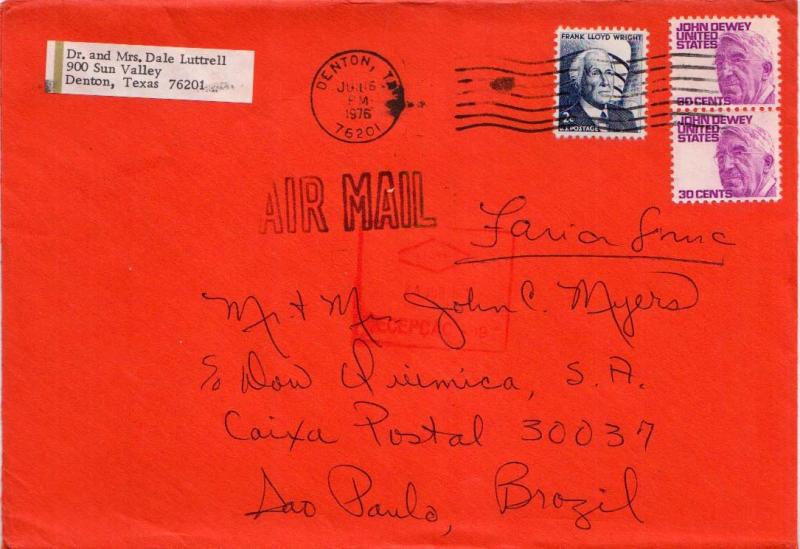 Dr. and Mrs. Dale Luttrell
900 Sun Valley
Denton, Texas 76201
DENTON, TX
JUL 16
PM
1976
76201
FRANK LLOYD WRIGHT
2c
U.S. POSTAGE
JOHN DEWEY
UNITED
STATES
30 CENTS
JOHN DEWEY
UNITED
STATES
30 CENTS
AIR MAIL
Faria
RECEPCAO
Mr + Mrs John C. Myers
% Dow Quimica, S.A.
Caixa Postal 30037
Sao Paulo, Brazil